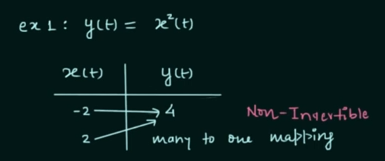 ex 1 : y(t) = x²(t)
x(t) y(t)
-2 4 Non-Invertible
2 many to one mapping